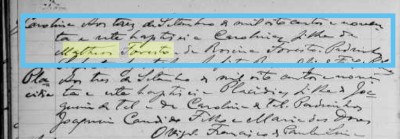 Carolina Aos tres de Setembro de mil oito centos e noven
ta e sete baptizei a Carolina, filha de
Matheus Foresto e de Rosina Foresto. Padrinhos
Pla Aos tres de Setembro de mil oito centos e noventa
cida e sete baptizei a Placidia, filha de Joa
quim de tal e de Carolina de tal. Padrinhos
Joaquim Candido Filho e Maria das Dores
O Vigr Francisco de Paula Lima